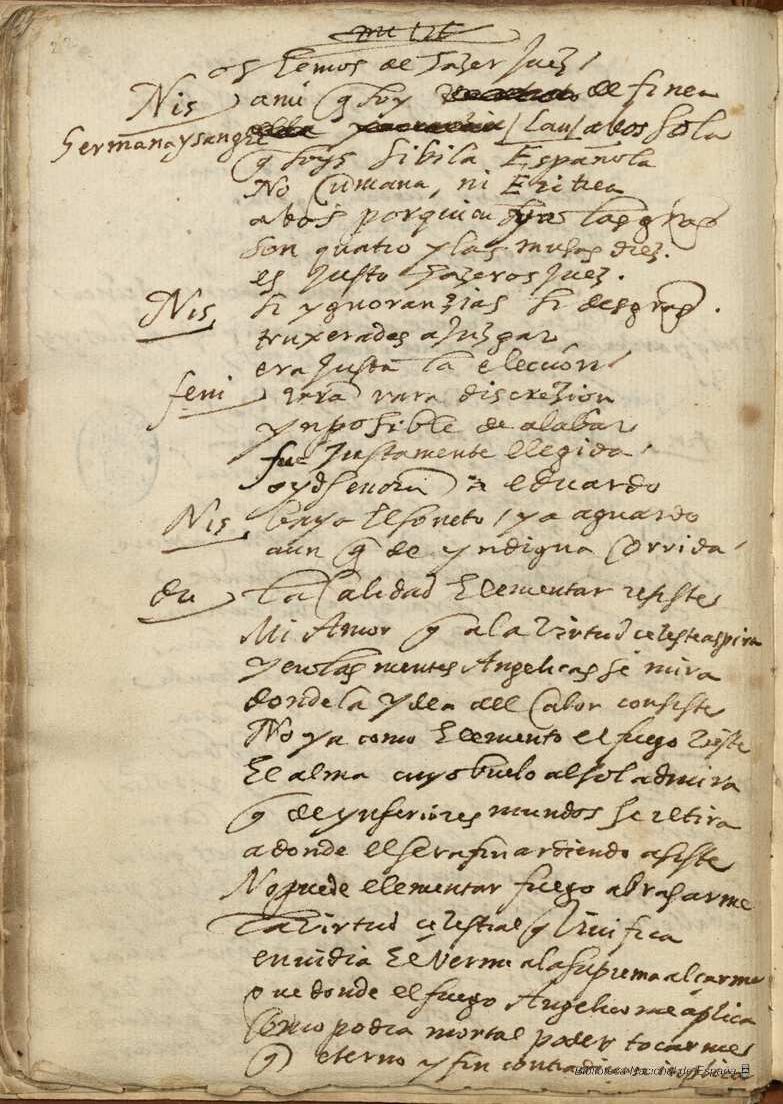 os hemos de hazer Juez /
Nis a mi q soy de finea
hermana y sangre / Lau / a bos sola
q soys Sibila Española
No Cumana, ni Eritrea
a bos por quien ya las graz
son quatro y las musas diez.
es Justo hazeros Juez.
Nis si ygnoranzias si desgraz.
truxerades a Juzgar
era Justa la eleccion /
feni rara discrezion
ynposible de alabar
fue Justamente llegida /
oyd señora eduardo
Nis baya El soneto / ya aguardo
aun q de yndigna Corrida /
du La Calidad Elementar resiste
Mi Amor q a la Virtud celeste aspira
y en las mentes Angelicas se mira
donde la ydea del Calor consiste
No ya como Elemento el fuego Viste
El alma cuyo buelo al sol admira
q de ynferiores mundos se retira
a donde el serafin ardiendo asiste
No puede elementar fuego abrasarme
La Virtud celestial q Viuifica
enuidia El Verme a la suprema alçarme
que donde el fuego Angelico me aplica
Como podra mortal poder tocarme
q eterno y fin contradicion inplica
Biblioteca Nacional de España